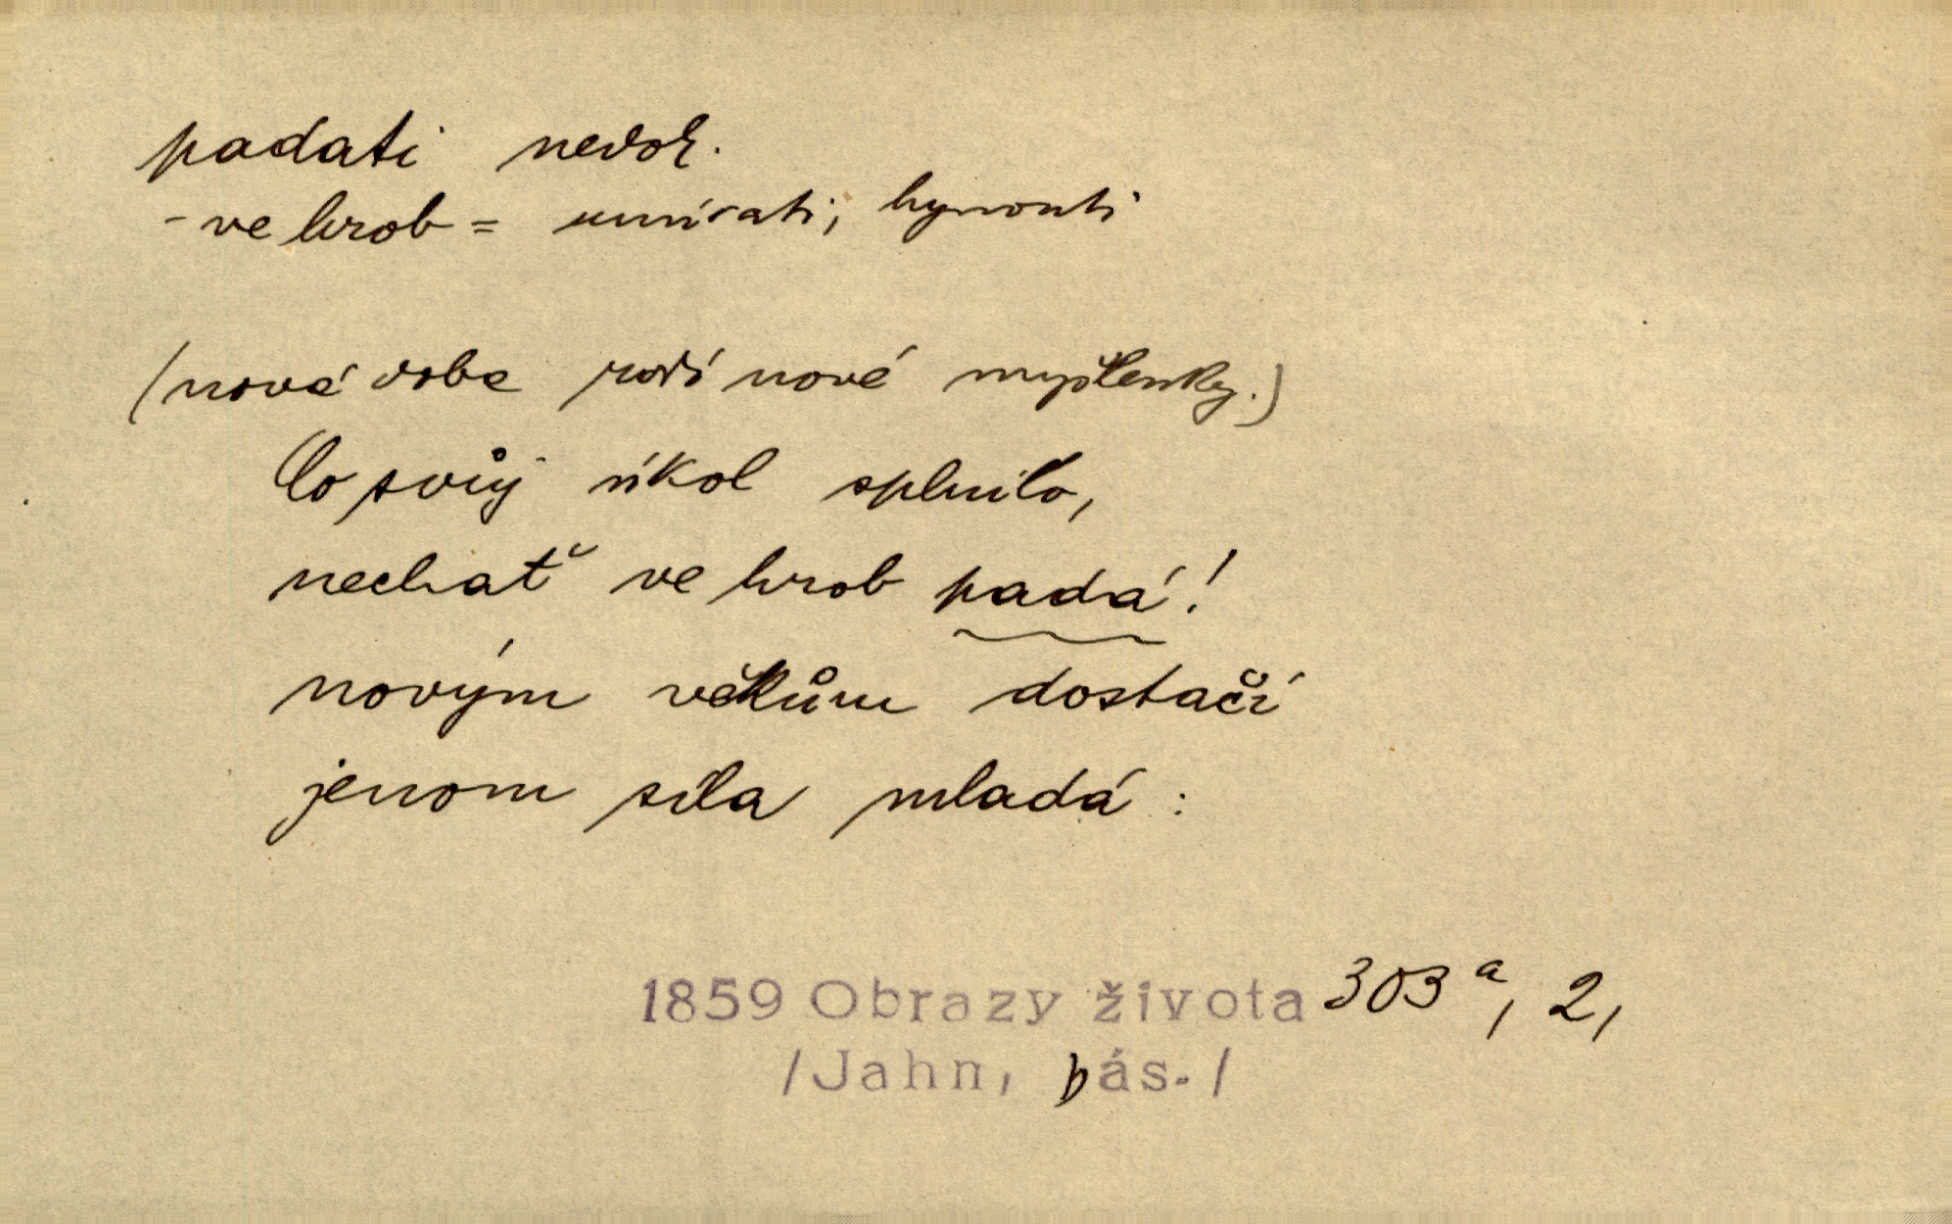 padati nedok.
- ve hrob = umírati, hynouti
(nová doba rodí nové myšlenky.)
Co svůj úkol splnilo,
nechať ve hrob padá!
novým věkům dostačí
jenom síla mladá :
1859 Obrazy života 303 a, 2,
/Jahn, bás./